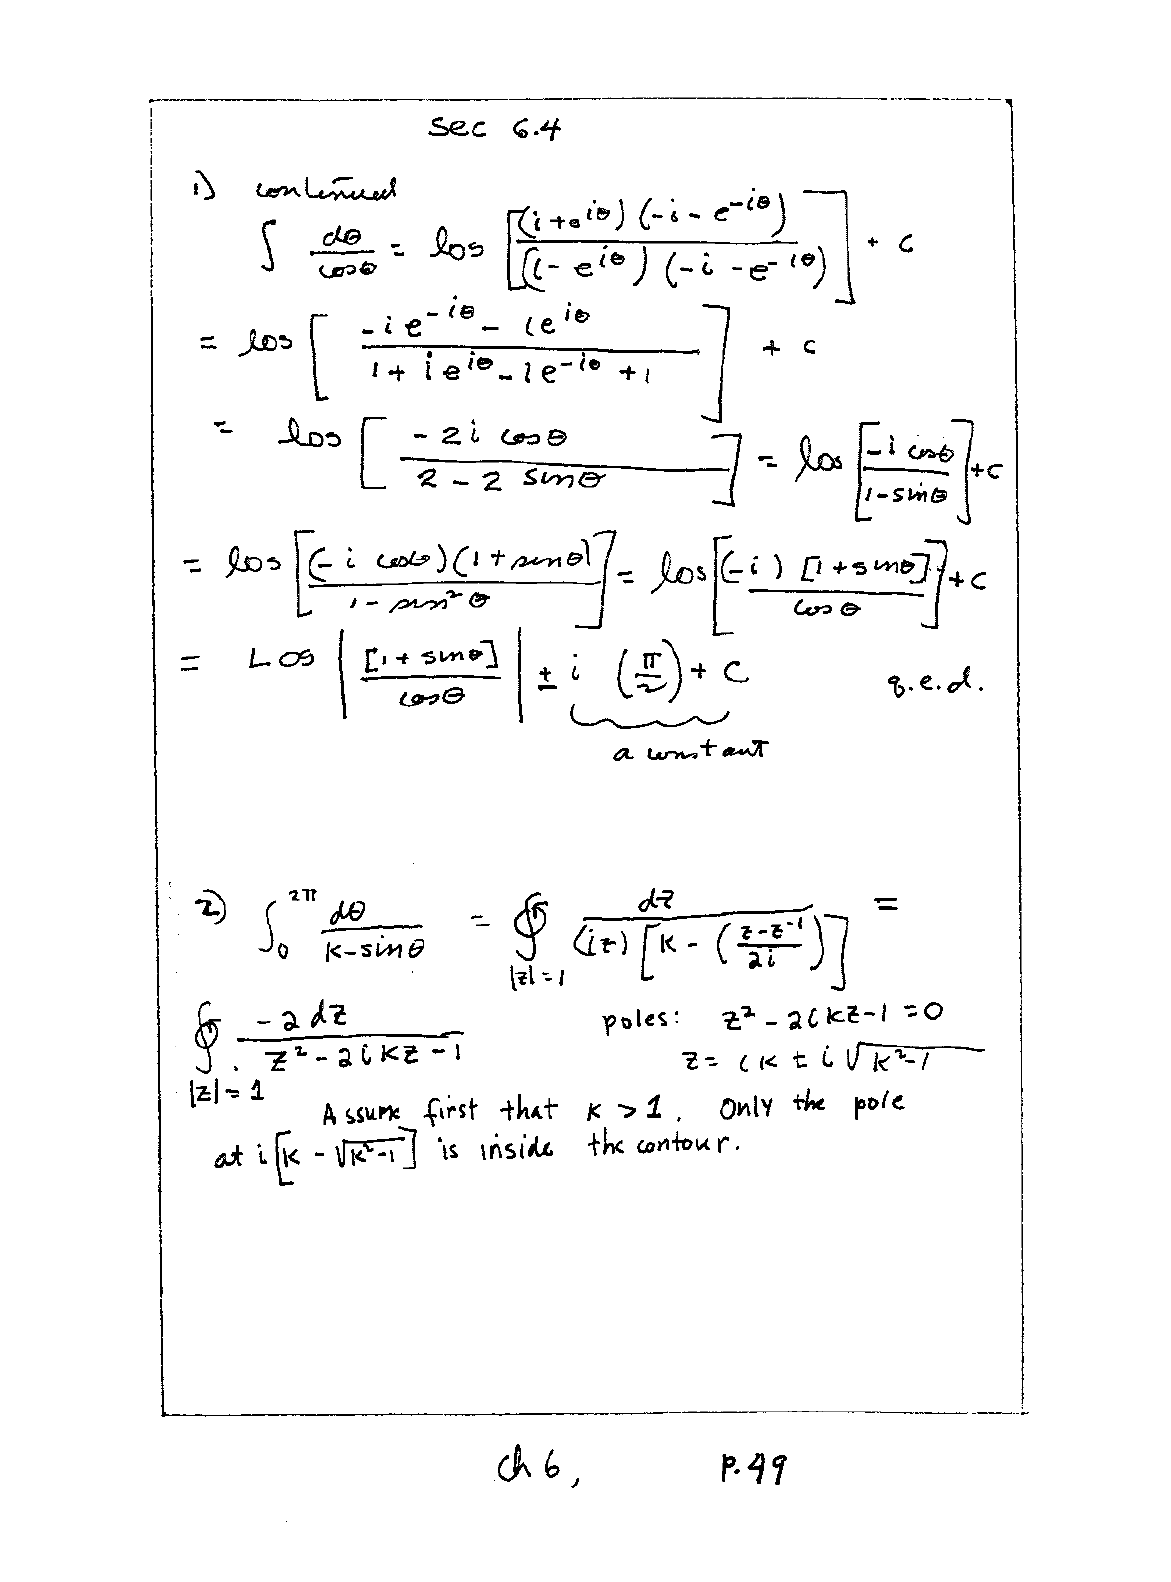 Sec 6.4
1) continued
∫ dθ/cosθ = log [(i+e^{iθ})(-i-e^{-iθ}) / (i-e^{iθ})(-i-e^{-iθ})] + c
= log [ -ie^{-iθ} - ie^{iθ} / 1+ie^{iθ}-ie^{-iθ}+1 ] + c
= log [ -2i cosθ / 2-2 sinθ ] = log [ -i cosθ / 1-sinθ ] + c
= log [ (-i cosθ)(1+sinθ) / 1-sin²θ ] = log [ (-i) [1+sinθ] / cosθ ] + c
= Log | [1+sinθ] / cosθ | ± i (π/2) + C q.e.d.
a constant
2) ∫_0^{2π} dθ/(k-sinθ) = ∮_{|z|=1} dz / (iz)[k-((z-z^{-1})/2i)] =
∮_{|z|=1} -2dz / z²-2ikz-1 poles: z²-2ikz-1=0
z= ik ± i√(k²-1)
Assume first that k>1. Only the pole
at i[k-√(k²-1)] is inside the contour.
ch 6, p.49